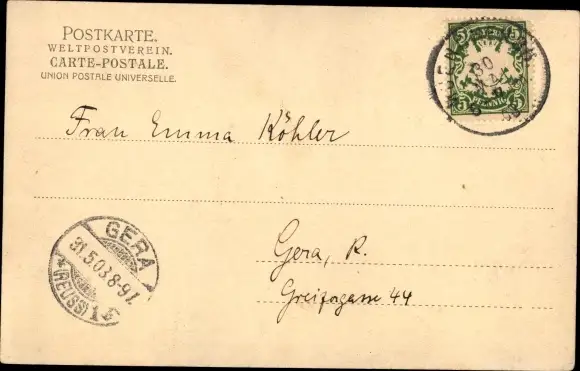 POSTKARTE.
WELTPOSTVEREIN.
CARTE-POSTALE.
UNION POSTALE UNIVERSELLE.
BAYERN
5 5
5 PFENNIG 5
30 MAI
Frau Emma Köhler
GERA
31.5.03.8-9V.
*(REUSS) 1 c
Gera, R.
Greizergasse 44